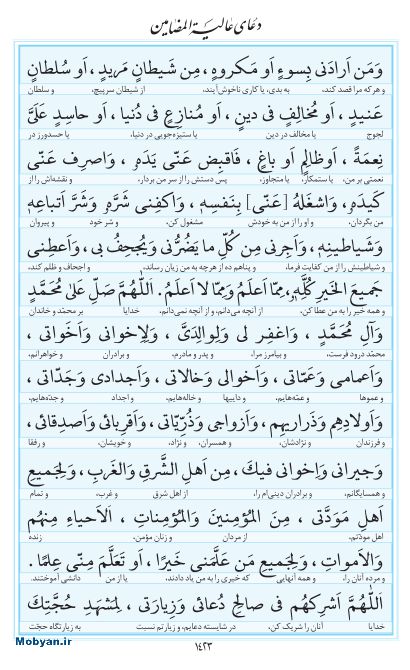 دعای عالیة المضامین
وَمَن اَرادَنی بِسوءٍ اَو مَکروهٍ، مِن شَیطانٍ مَریدٍ، اَو سُلطانٍ
و هر که مرا قصد کند، به بدی، یا کاری ناخوش‌آیند، از شیطان سرپیچ، و سلطان
عَنیدٍ، اَو مُخالِفٍ فی دینٍ، اَو مُنازِعٍ فی دُنیا، اَو حاسِدٍ عَلَیَّ
لجوج یا مخالف در دین یا ستیزه‌جویی در دنیا، یا حسدورز در
نِعمَةً، اَوظالِمٍ اَو باغٍ، فَاقبِض عَنّی یَدَهٗ، وَاصرِف عَنّی
نعمتی بر من، یا ستمکار، یا متجاوز، پس دستش را از سر من بردار، و نقشه‌اش را از
کَیدَهٗ، وَاشغَلهُ [عَنّی] بِنَفسِهٖ، وَاکفِنی شَرَّهٗ وَشَرَّ اَتباعِهٖ
من بگردان، و او را از من به خودش مشغول کن، و شر خود و پیروان
وَشَیاطینِهٖ، وَاَجِرنی مِن کُلِّ ما یَضُرُّنی وَیُجحِفُ بی، وَاَعطِنی
و شیاطینش را از من کفایت فرما، و پناهم ده از هرچه به من زیان رساند، و اجحاف و ظلم کند،
جَمیعَ الخَیرِ کُلِّهٖ، مِمّا اَعلَمُ وَمِمّا لا اَعلَمُ. اَللّهُمَّ صَلِّ عَلیٰ مُحَمَّدٍ
و همه خیر را به من عطا کن، از آنچه می‌دانم، و از آنچه نمی‌دانم، خدایا بر محمد و خاندان
وَآلِ مُحَمَّدٍ، وَاغفِر لی وَلِوالِدَیَّ، وَلِاِخوانی وَاَخَواتی،
محمّد درود فرست، و بیامرز مرا، و پدر و مادرم، و برادران و خواهرانم،
وَاَعمامی وَعَمّاتی، وَاَخوالی وَخالاتی، وَاَجدادی وَجَدّاتی،
و عموها و عمّه‌هایم، و دایی‌ها و خاله‌هایم، و اجداد و جدّه‌هایم،
وَاَولادِهِم وَذَراریهِم، وَاَزواجی وَذُرِّیّاتی، وَاَقرِبائی وَاَصدِقائی،
و فرزندان و نژادشان، و همسران، و نژاد، و خویشان، و رفقا
وَجیرانی وَاِخوانی فیكَ، مِن اَهلِ الشَّرقِ وَالغَربِ، وَلِجَمیعِ
و همسایگانم، و برادران دینی‌ام را، از اهل شرق و غرب، و تمام
اَهلِ مَوَدَّتی، مِنَ المُؤمِنینَ وَالمُؤمِناتِ، اَلاَحیاءِ مِنهُم
اهل مودّتم، از مردان و زنان مؤمن، زنده
وَالاَمواتِ، وَلِجَمیعِ مَن عَلَّمَنی خَیرًا، اَو تَعَلَّمَ مِنّی عِلمًا.
و مرده آنان را، و همه آنهایی که خیری را به من یاد دادند، یا از من دانشی آموختند.
اَللّهُمَّ اَشرِکهُم فی صالِحِ دُعائی وَزِیارَتی، لِمَشهَدِ حُجَّتِكَ
خدایا آنان را شریک کن، در شایسته دعایم، و زیارتم نسبت به زیارتگاه حجّت
۱۴۲۳
Mobyan.ir